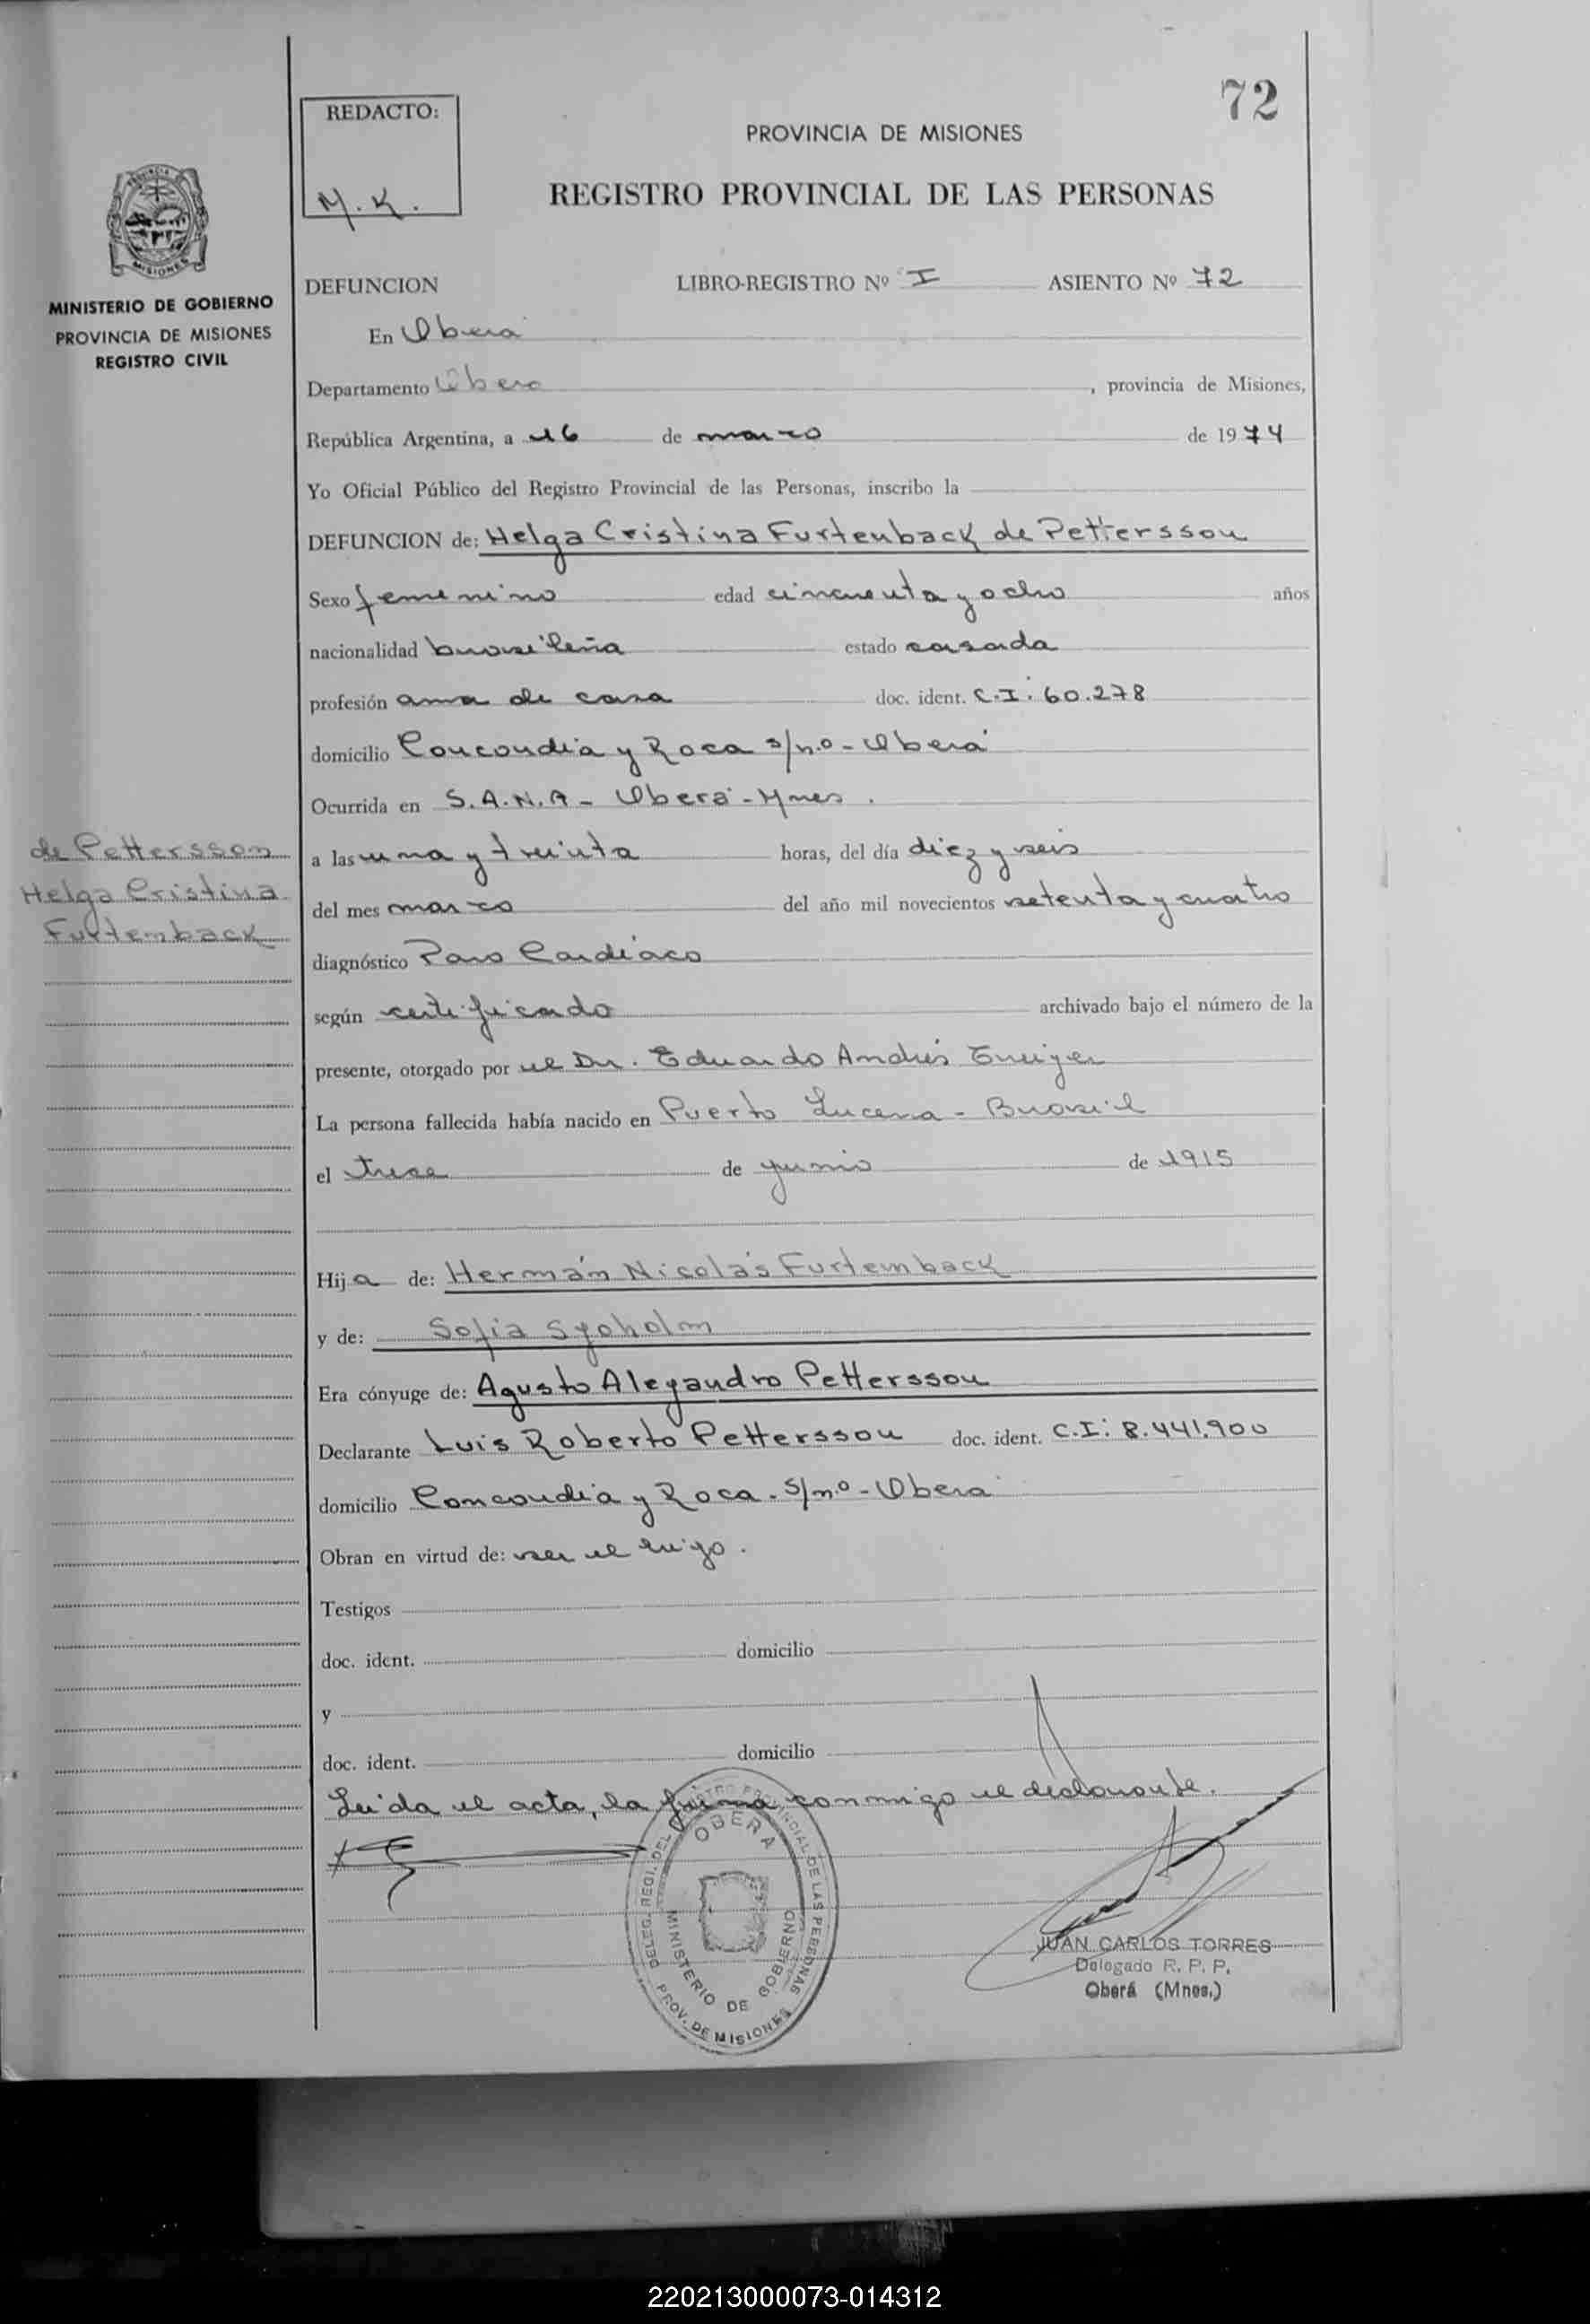 72
REDACTO:
M.K.
PROVINCIA DE MISIONES
REGISTRO PROVINCIAL DE LAS PERSONAS
MISIONES
MINISTERIO DE GOBIERNO
PROVINCIA DE MISIONES
REGISTRO CIVIL
DEFUNCION LIBRO-REGISTRO Nº I ASIENTO Nº 72
En Oberá
Departamento Oberá, provincia de Misiones,
República Argentina, a 16 de marzo de 1974
Yo Oficial Público del Registro Provincial de las Personas, inscribo la
DEFUNCION de: Helga Cristina Furtenback de Pettersson
Sexo femenino edad cincuenta y ocho años
nacionalidad brasileña estado casada
profesión ama de casa doc. ident. C.I. 60.278
domicilio Concordia y Roca s/n.o - Oberá
Ocurrida en S.A.N.A - Oberá - Mnes.
a las una y treinta horas, del día diez y seis
del mes marzo del año mil novecientos setenta y cuatro
diagnóstico Paro Cardíaco
según certificado archivado bajo el número de la
presente, otorgado por el Dr. Eduardo Andrés
La persona fallecida había nacido en Puerto Lucena - Brasil
el trese de junio de 1915
de Pettersson
Helga Cristina
Furtemback
Hija de: Hermán Nicolás Furtemback
y de: Sofia Syoholm
Era cónyuge de: Agusto Aleyandro Pettersson
Declarante Luis Roberto Pettersson doc. ident. C.I: 8.441.900
domicilio Concordia y Roca - s/n.o - Oberá
Obran en virtud de: ser el hijo.
Testigos
doc. ident. domicilio
y
doc. ident. domicilio
Leída el acta, la firma conmigo el declarante.
DELEG. REGI. DEL REGISTRO PROVINCIAL DE LAS PERSONAS
OBERA
MINISTERIO DE GOBIERNO
PROV. DE MISIONES
JUAN CARLOS TORRES
Delegado R. P. P.
Oberá (Mnes.)
220213000073-014312